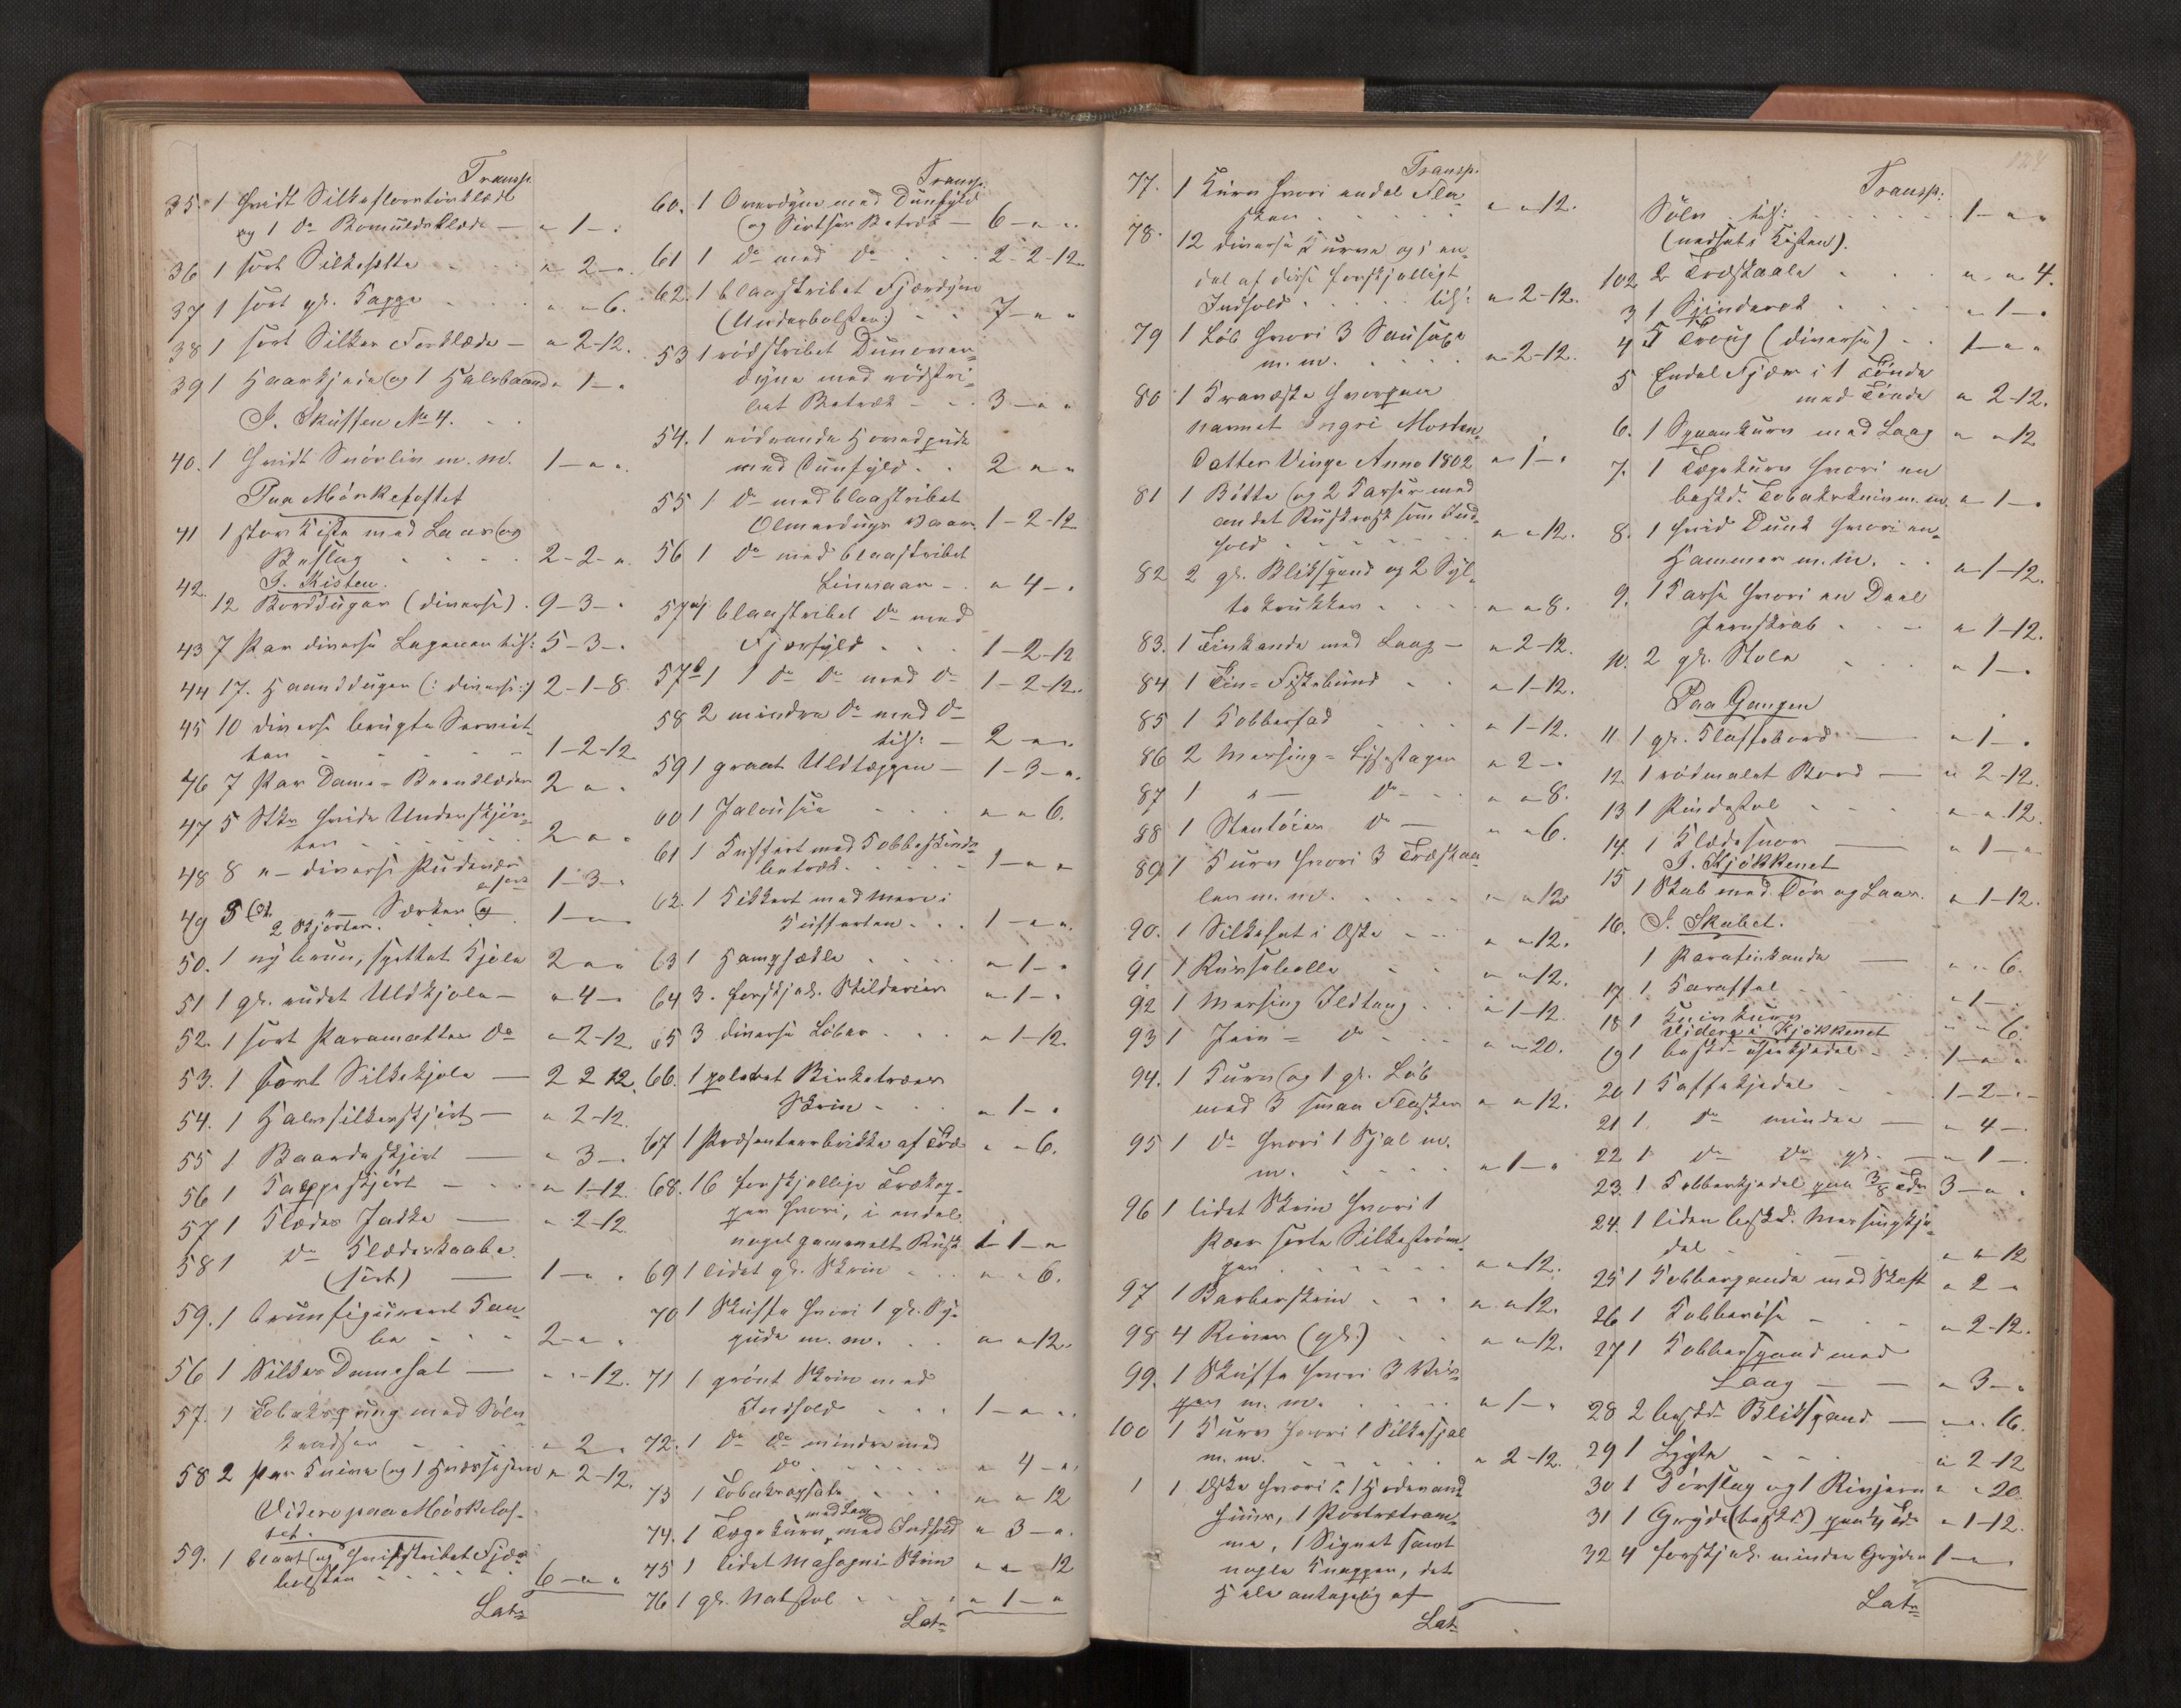 Transp.
35. 1 hvidt Silkeflorstörklæde
og 1 do Bomuldsklæde — " 1 — "
36 1 sort Silkehætte " 2 — "
37 1 sort gl. Kappe " " 6.
38 1 sort Silke Forklæde — " 2-12.
39 1 Haarkjede og 1 Halsbaand " 1 — "
I. Skuffen No 4.
40. 1 hvidt Snörliv m. m. 1 — " "
Paa Mörkeloftet
41 1 stor Kiste med Laas og
Beslag 2-2- "
42. I. Kisten.
12 Bordduger (diverse). 9-3- "
43 7 Par diverse Lagener tils: 5-3- "
44 17. Haandduger (: diverse :) 2-1-8.
45 10 diverse brugte Serviet-
ter 1-2-12
46 7 Par Dame-Benklæder 2 " "
47 5 Stkr hvide Underskjör-
ter 2 " "
48 8 " — diverse Pudevaar 1-3- "
49 5 " — Særker og
2 Skjorter. 1 — "
50. 1 ny brun, spættet Kjole 2 " "
51 1 gl. rudet Uldkjole — " 4 — "
52. 1 sort Paramatta do " 2-12.
53. 1 sort Silkekjole — 2 2 12.
54. 1 Halvsilkeskjört — " 2-12.
55 1 Baandeskjört — " 3 — "
56 1 Kappeskjört — " 1-12.
57 1 Klædes Jakke — " 2-12
58 1 do Klædeskaabe
(sort) — 1 — " "
59. 1 brunfigureret Kaa-
be 2 — " "
56 1 Silke Damehat — " " 12.
57. 1 Tobakspung med Sölv-
kvadser " 2 — "
58 2 Par Knive og 1 " 2-12.
Videre paa Mörkelof-
tet.
59. 1 blaat og hvidstribet Fjær-
bolster 6 — " "
Latr

Transp.
60. 1 Overdyne med Dunfyld
og Sirtses Betræk — 6 — " "
61 1 do med do 2-2-12.
62. 1 blaastribet Fjærdyne
(Underbolster) 7 — " "
53 1 rödstribet Dunover-
dyne med rödstri-
bet Betræk 3 — " "
54. 1 rödrandet Hovedpude
med Dunfyld 2 " "
55 1 do med blaastribet
Olmerdugs Vaar 1-2-12
56 1 do med blaastribet
Linvaar " 4 — "
57a 1 blaastribet do med
Fjærfyld 1-2-12
57b 1 1 do do med do 1-2-12.
58 2 mindre do med do
tils: — 2 — "
59 1 graat Uldtæppe — 1-3- "
60 1 Jalousie " " 6.
61 1 Kuffert med Kobbeskinds-
betræk 1 — " "
62. 1 Kikkert med mere i
Kufferten 1 — " "
63 1 Hampehækle " 1 — "
64 3. forskjel. Skilderier " 1 — "
65 3 diverse Löber " 1-12.
66. 1 poleret Birketræes
Skrin " 1 — "
67 1 Præsenteerbrikke af Træ " " 6.
68. 16 forskjellige Trækop-
per hvori, i endel
noget gammelt Rusk " 1 — "
69 1 lidet gl. Skrin " " 6.
70 1 Skuffe hvori 1 gl. Sy-
pude m. m. " " 12.
71 1 grönt Skrin med
Indhold 1 — " "
72. 1 do do mindre med
do " 4 — "
73 1 " " 12
74. 1 Tægekurv med Laag med Indhold " 3 — "
75 1 lidet Mahogni-Skrin " " 12
76 1 gl. Natstol " 1 — "
Latr

Transp.
77. 1 Kurv hvori endel Fla-
sker " " 12.
78. 12 diverse Kurve og i en-
del af disse forskjelligt
Indhold tils: " 2-12.
79 1 Löb hvori 3 Sausage
m. m. " 2-12.
80 1 Travæske hvorpaa
navnet Ingri Mosten
Datter Vinge Anno 1802 " 1 — "
81 1 Bötte og 2 Kasser med
andet Ruskrask som Ind-
hold " " 12.
82 2 gl. Blikspand og 2 Syl-
te krukker " " 8.
83. 1 Tinkande med Laag — " 2-12.
84 1 Tin-Fiskebund " 1-12.
85 1 Kobberfad " 1-12.
86 2 Messing-Lysestager " 2 — "
87 1 " — do " " 8.
88 1 Stentöies do — " " 6.
89 1 Kurv hvori 3 Træskaa-
ler m. m. " " 12
90. 1 Silkehat i Æske " " 12.
91 1 Punsebolle " " 12.
92 1 Messing Ildtang " 1-12.
93 1 Jern = do " " 20.
94. 1 Kurv og 1 gl. Löb
med 3 smaa Flasker " " 12.
95 1 do hvori 1 Sjal m.
m. " 1 — "
96 1 lidet Skrin hvori 1
Par sorte Silkeström-
per " " 12.
97 1 Barberskrin " " 12.
98 4 River (gl.) " " 12.
99. 1 Skuffe hvori 3
m. m. " 1 — "
100 1 Kurv hvori 1 Silkesjal
m. m. " 2-12.
1 1 Æske hvori: 1 Hovedvand
huus, 1 Portrætram-
me, 1 Signet samt
nogle Knapper, det
Hele antagelig af
Latr

124
Transp:
Sölv tils: 1 — " "
(nedsat i Kisten).
102 2 Træskaale " " 4.
3 1 Spinderok " 1 — "
4 5 Troug (diverse) 1 — " "
5 Endel Fjær i 1 Tönde
med Tönde " 2-12.
6. 1 Spaankurv med Laag " " 12
7. 1 Tægekurv hvori en
beskd. Tobakskniv m. m. " 1 — "
8. 1 hvid Dunk hvori en
Hammer m. m. " 1-12.
9. 1 Kasse hvori en Deel
Jernskrab " 1-12.
10. 2 gl. Stole " 1 — "
Paa Gangen
11 1 gl. Klaffebord " 1 — "
12. 1 rödmalet Bord — " 2-12.
13 1 Pindestol " " 12.
14. 1 Klædesnor " 1 — "
I. Kjökkenet
15 1 Skab med Dör og Laas. " 1-12.
16. I. Skabet.
1 Parafinkande — " " 6.
17 1. Karaffel " 1 — "
18 1 Knivkurv " " 6.
Videre i Kjökkenet
19 1 beskd. 1 — " "
20 1 Kaffekjedel 1-2- "
21 1. do mindre — " 4 — "
22 1 do do gl. — " 1 — "
23. 1 Kobberkjedel paa 3/8 Tde 3 — " "
24. 1 liden beskd. Messingkje-
del " " 12
25 1 Kobberpande med Skaft " 2 — "
26 1 Kobberöse " 2-12.
27 1 Kobberspand med
Laag — " 3 — "
28 2 beskd. Blikspand — " " 16.
29 1 Lygte " 2 12
30 1 Dörslag og 1 Rivjern " " 20.
31 1 Gryde (beskd.) paa 1/4 Tde " 1-12.
32 4 forskjel. mindre Gryder 1 — " "
Latr